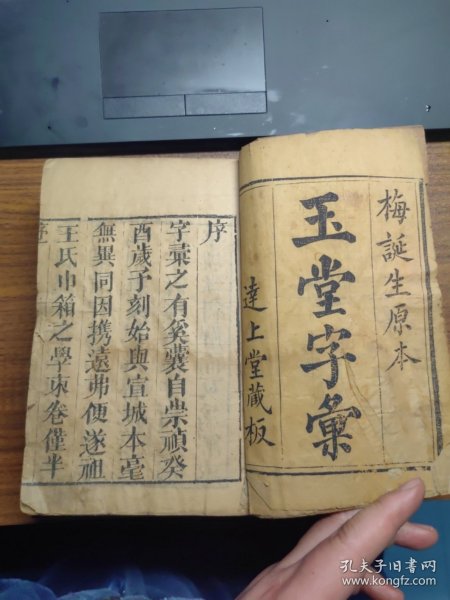 梅誕生原本
玉堂字彙
達上堂藏板
序
字彙之有奚囊自崇禎癸
酉歲予刻始與宣城本毫
無異同因携遠弗便遂祖
王氏巾箱之學束卷僅半
序
孔夫子旧书网
www.kongfz.com